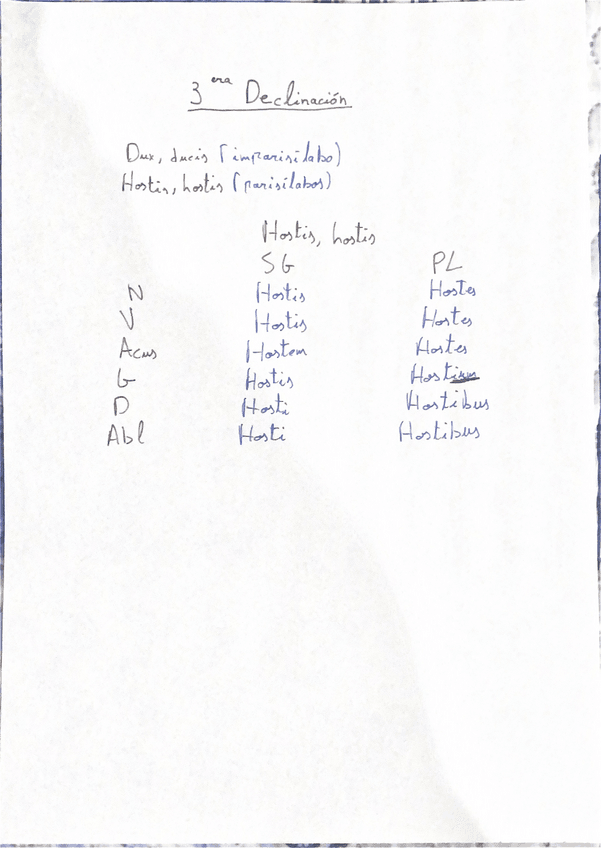 3era Declinación
Dux, ducis (imparisílabo)
Hostis, hostis (parisílabos)
Hostis, hostis
SG PL
N Hostis Hostes
V Hostis Hostes
Acus Hostem Hostes
G Hostis Hostium
D Hosti Hostibus
Abl Hosti Hostibus